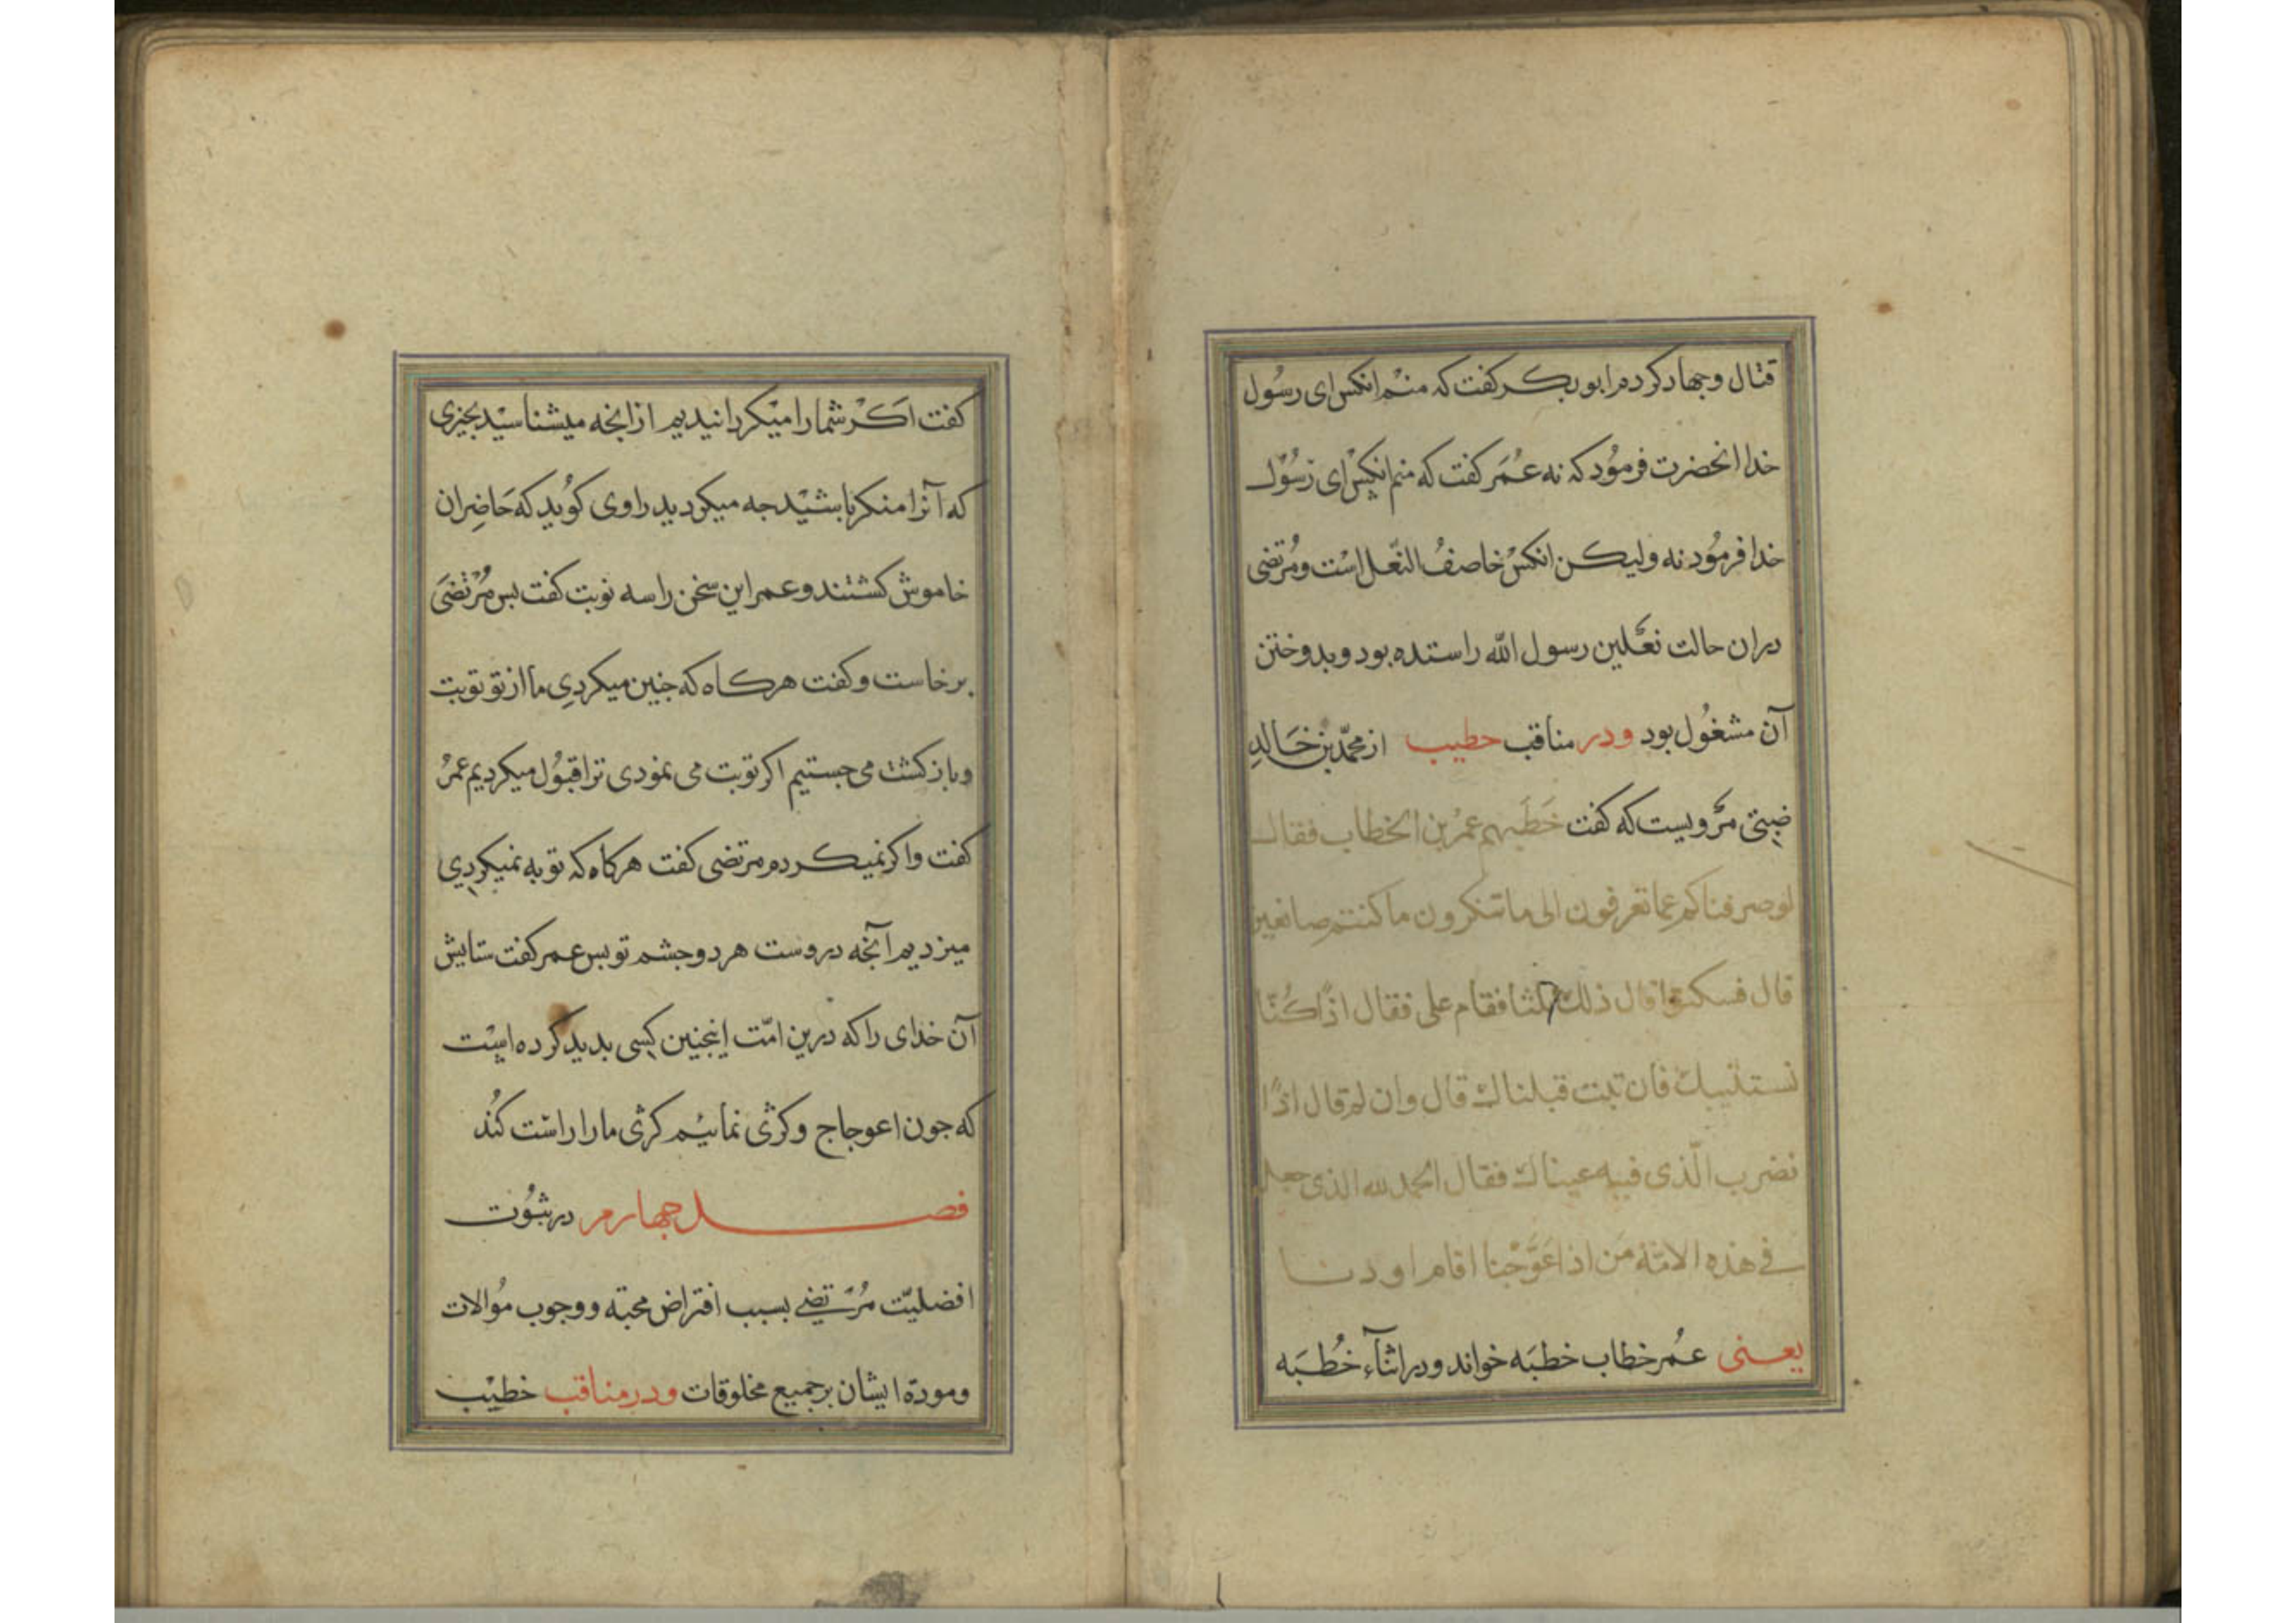 قتال وجهاد کردم ابوبکر کفت که منم انکس ای رسُول
خدا انحضرت فرمُود که نه عُمَر کفت که منم انکس ای رسُول
خدا فرمُود نه ولیکن انکس خاصفُ النّعل است ومُرتضی
دران حالت نعلین رسول الله راستده بود وبدوختن
آن مشغُول بود ودر مناقب خطیب از محمّد بن خَالدِ
ضبّی مرویست که کفت خَطَبهم عمرُ بن الخطاب فقال
لوصرفناکم عما تعرفون الی ما تنکرون ما کنتم صانعین
قال فسکتوا قال ذلک ثلثا فقام علی فقال اذًا کُنّا
نستتیبک فان تبت قبلناک قال وان لم قال اذًا
نضرب الّذی فیه عیناک فقال الحمد لله الذی جعل
فی هذه الامّة مَن اذا عَوَّجْنا اقام اودنا
یعنی عُمر خطاب خطبَه خواند ودر اثنآء خُطبَه
کفت اکر شما را میکردانیدیم از انجه میشناسید بجیزی
که آنرا منکر باشید جه میکردید راوی کوُید که حَاضِران
خاموش کشتند وعمر این سخن را سه نوبت کفت بس مُرْتضَی
برخاست وکفت هرکاه که جنین میکردیِ ما از تو توبت
وبازکشت می جستیم اکر توبت می نمودی ترا قبُول میکردیم عمرُ
کفت واکر نمیکردم مرتضی کفت هرکاه که توبه نمیکردیِ
میزدیم آنجه دروست هر دو جشم تو بس عمر کفت ستایش
آن خدای راکه درین امّت اینجنین کسی بدید کرده است
که جون اعوجاج وکژی نمائیم کژی ما را راست کُند
فصل جهارم در ثبُوت
افضلیّت مُرتضی بسبب افتراض محبته ووجوب مُوالات
ومودة ایشان برجمیع مخلوقات ودر مناقب خطیب